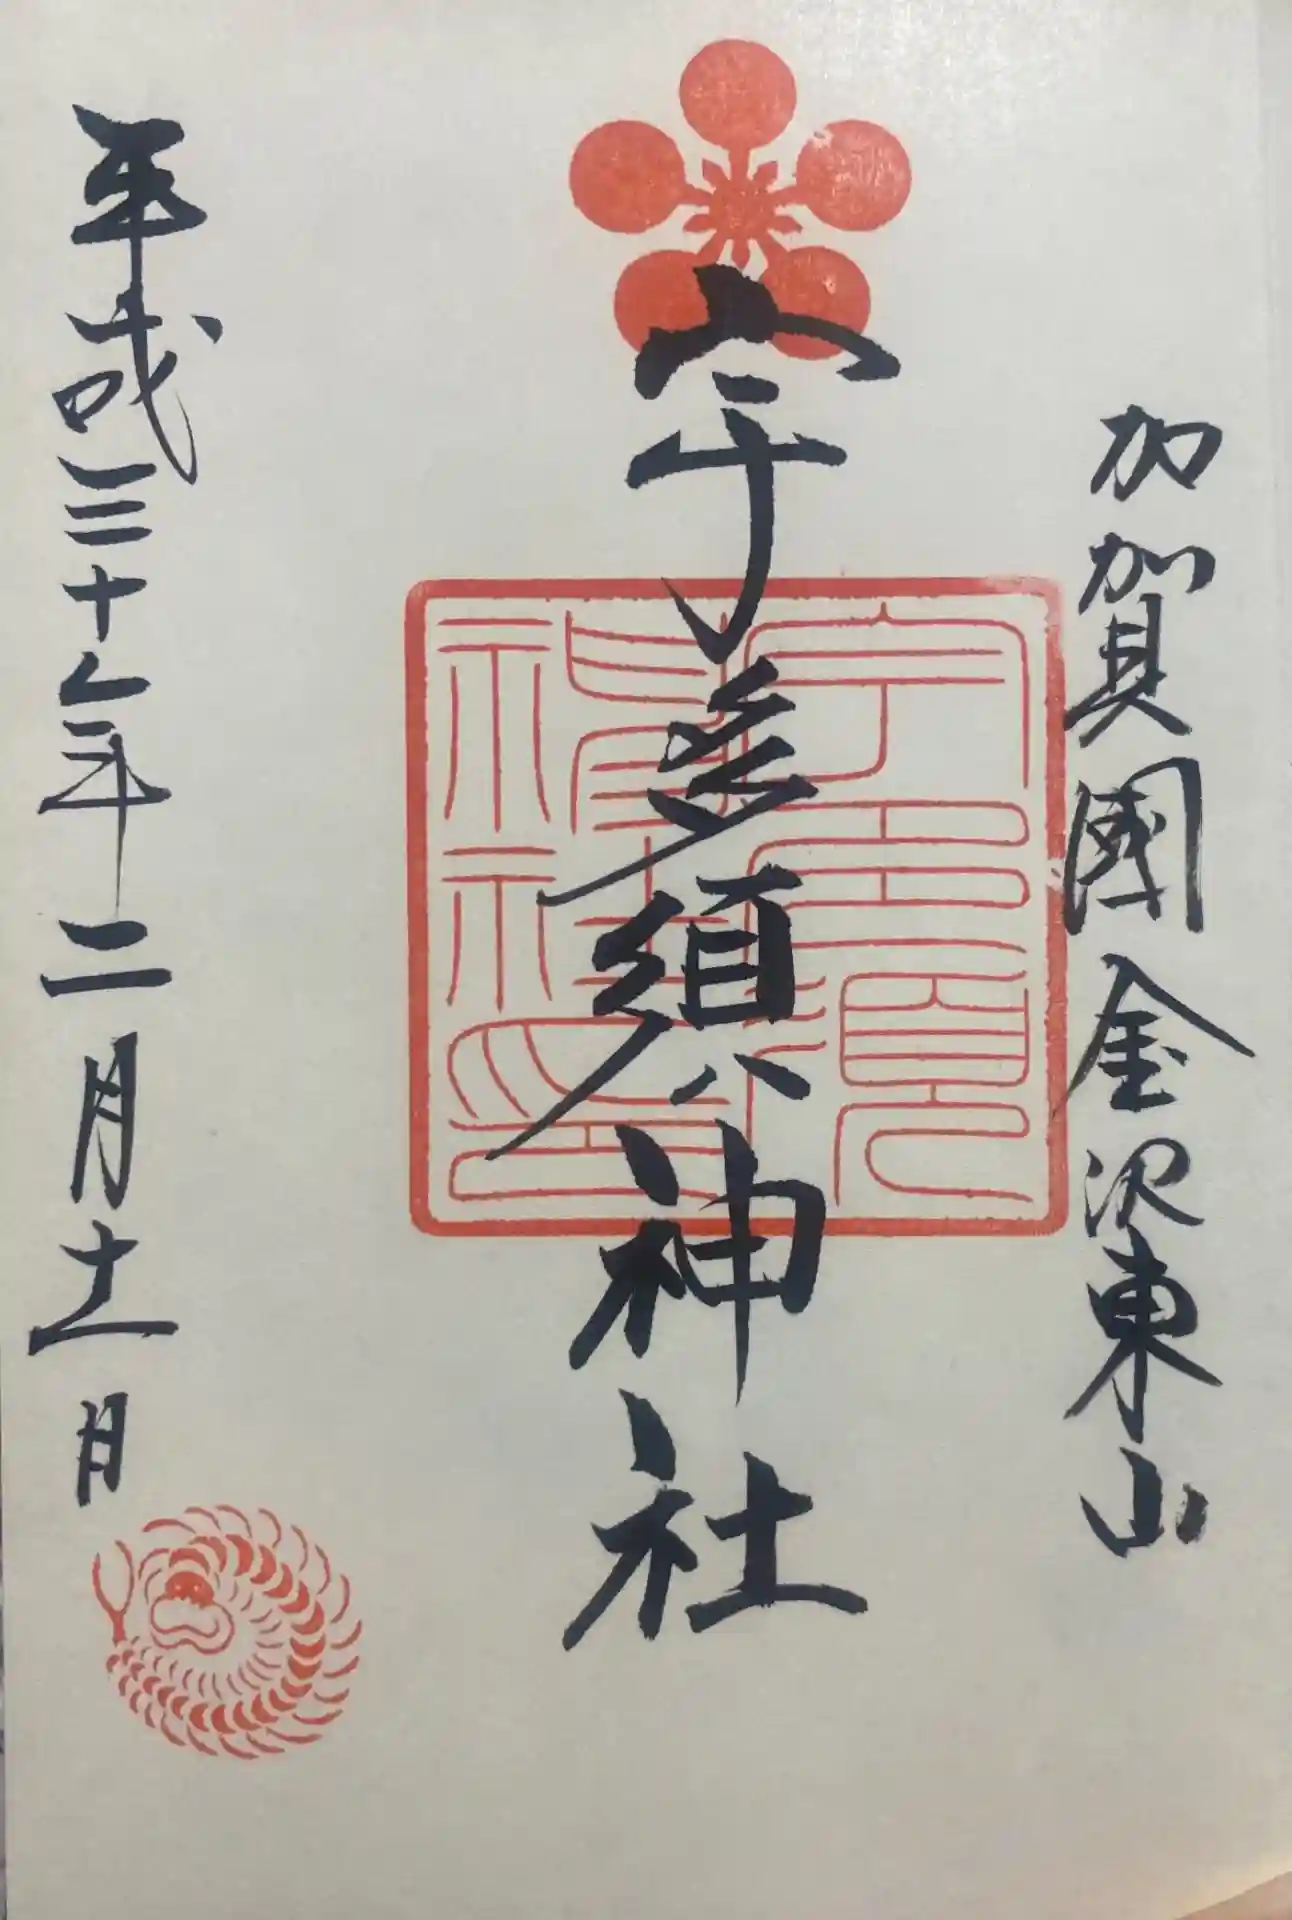 加賀國金沢東山
宇多須神社
宇多須神社印
平成三十年二月十一日